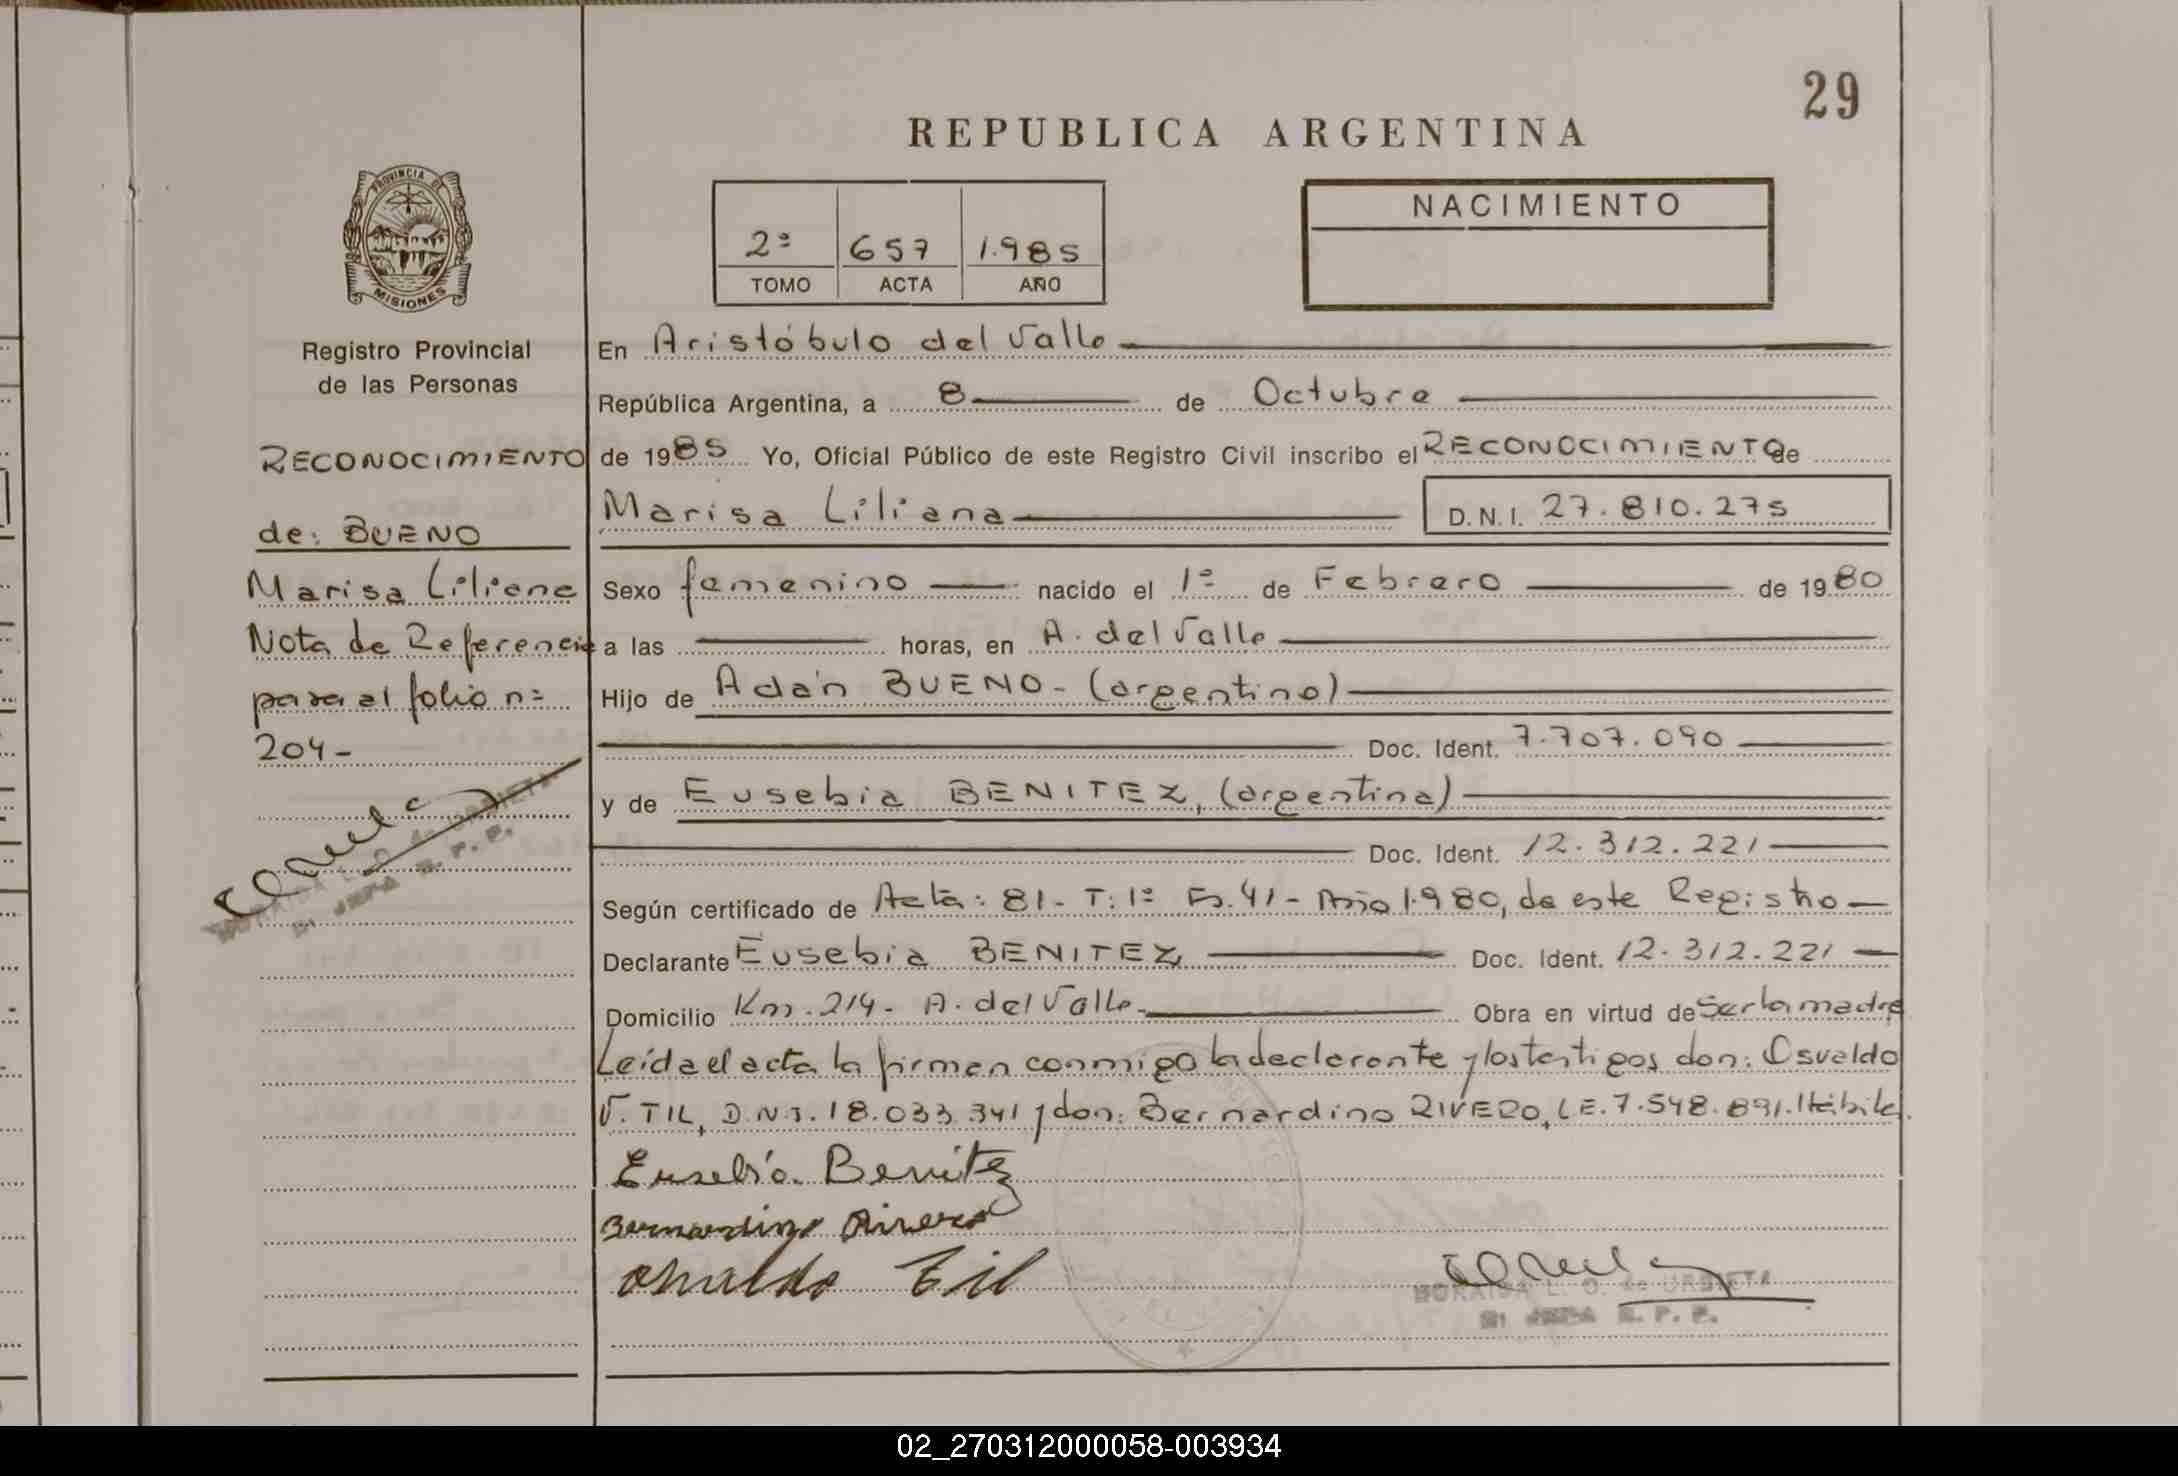 29
REPUBLICA ARGENTINA
PROVINCIA DE
MISIONES
2º 657 1.985
TOMO ACTA AÑO
NACIMIENTO
Registro Provincial
de las Personas
RECONOCIMIENTO
de: BUENO
Marisa Liliana
Nota de Referencia
para el folio nº
204-
En Aristóbulo del Valle
República Argentina, a 8 de Octubre
de 1985 Yo, Oficial Público de este Registro Civil inscribo el RECONOCIMIENTO de
Marisa Liliana D.N.I. 27.810.275
Sexo femenino nacido el 1º de Febrero de 1980
a las horas, en A. del Valle
Hijo de Adán BUENO- (argentino)
Doc. Ident. 7.707.090
y de Eusebia BENITEZ, (argentina)
Doc. Ident. 12.312.221
Según certificado de Acta: 81- T: 1º Fs. 41- Año 1.980, de este Registro
Declarante Eusebia BENITEZ, Doc. Ident. 12.312.221
Domicilio Km. 214- A. del Valle- Obra en virtud de Ser la madre
Leída el acta la firman conmigo la declarante y los testigos don: Osvaldo
V. TIL, D.N.I. 18.033.341 y don: Bernardino RIVERO, L.E. 7.548.891. Hábiles.
Eusebia Benitez
Bernardino Rivero
Osvaldo Til
L. O. de URBIETA
R. P. P.
02_270312000058-003934